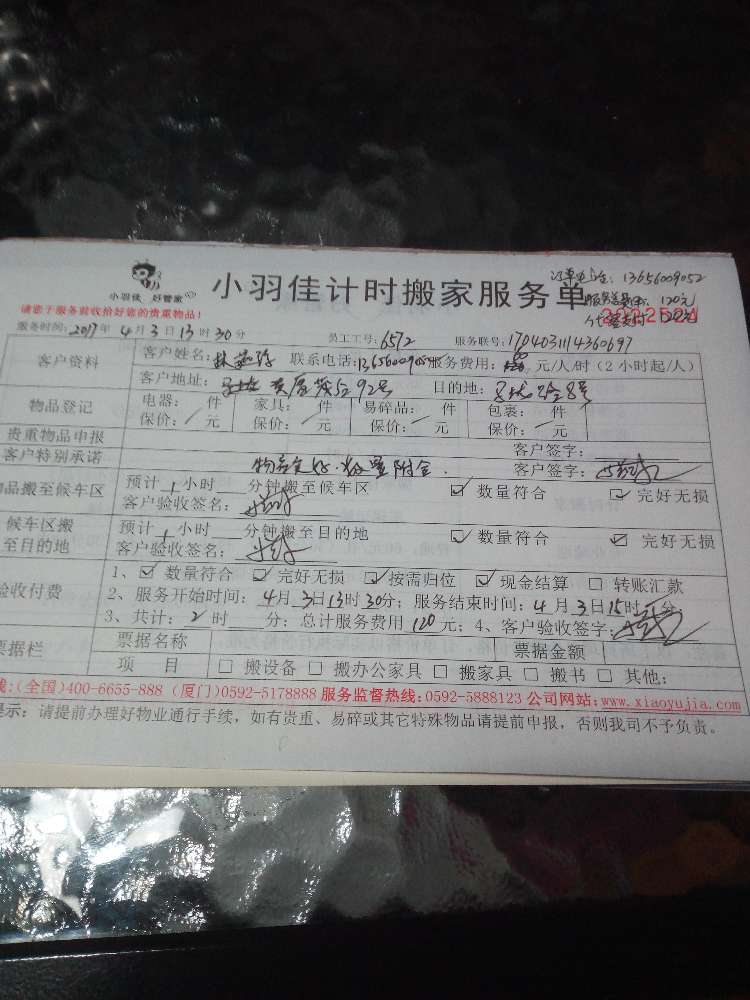 小羽佳 好管家
小羽佳计时搬家服务单
13656009052
120元
请您于服务前收拾好您的贵重物品!
服务时间: 2017年 4月 3日 13时 30分 员工工号: 6572 服务联号: 1704031114360697
客户资料
客户姓名: 林 联系电话: 服务费用: 元/人/时(2小时起/人)
客户地址: 92号 目的地: 8号
物品登记
电器: 件 家具: 件 易碎品: 件 包裹: 件
保价: / 元 保价: / 元 保价: / 元 保价: / 元
贵重物品申报 客户签字:
客户特别承诺 客户签字:
品搬至候车区
预计 1 小时 分钟搬至候车区 ☑ 数量符合 ☑ 完好无损
客户验收签名:
候车区搬至目的地
预计 1 小时 分钟搬至目的地 ☑ 数量符合 ☑ 完好无损
客户验收签名:
验收付费
1、☑ 数量符合 ☑ 完好无损 ☑ 按需归位 ☑ 现金结算 □ 转账汇款
2、服务开始时间: 4月 3日 13时 30分; 服务结束时间: 4月 3日 15时 分;
3、共计: 2 时 分; 总计服务费用 120 元; 4、客户验收签字:
票据栏
票据名称 票据金额
项 目 □ 搬设备 □ 搬办公家具 □ 搬家具 □ 搬书 □ 其他:
线:(全国)400-6655-888 (厦门)0592-5178888 服务监督热线:0592-5888123 公司网站:www.xiaoyujia.com
提示: 请提前办理好物业通行手续, 如有贵重、易碎或其它特殊物品请提前申报, 否则我司不予负责。